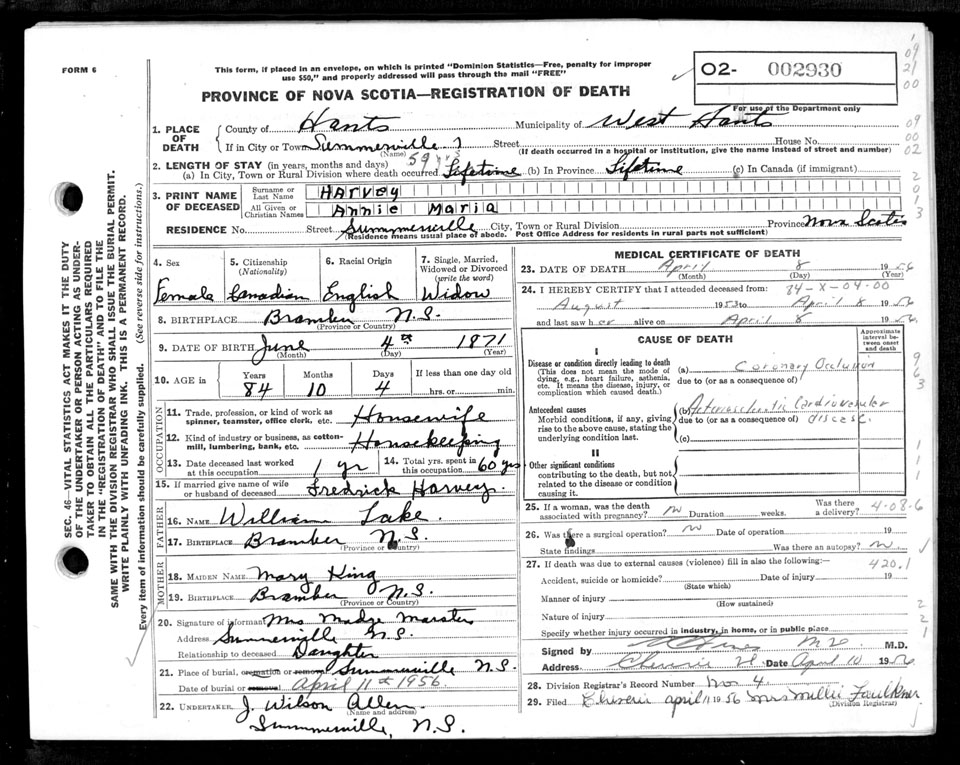 FORM 6
This form, if placed in an envelope, on which is printed "Dominion Statistics—Free, penalty for improper
use $50," and properly addressed will pass through the mail "FREE"
O2- 002930
For use of the Department only
PROVINCE OF NOVA SCOTIA—REGISTRATION OF DEATH
1. PLACE OF DEATH
County of Hants Municipality of West Hants
If in City or Town Summerville Street House No.
(Name) (If death occurred in a hospital or institution, give the name instead of street and number)
2. LENGTH OF STAY (in years, months and days) 59 yrs
(a) In City, Town or Rural Division where death occurred Lifetime (b) In Province Lifetime (c) In Canada (if immigrant)
3. PRINT NAME OF DECEASED
Surname or Last Name HARVEY
All Given or Christian Names Annie Maria
RESIDENCE No. Street Summerville City, Town or Rural Division Province Nova Scotia
(Residence means usual place of abode. Post Office Address for residents in rural parts not sufficient)
SEC. 46—VITAL STATISTICS ACT MAKES IT THE DUTY
OF THE UNDERTAKER OR PERSON ACTING AS UNDER-
TAKER TO OBTAIN ALL THE PARTICULARS REQUIRED
IN THE "REGISTRATION OF DEATH" AND TO FILE THE
SAME WITH THE DIVISION REGISTRAR WHO SHALL ISSUE THE BURIAL PERMIT.
WRITE PLAINLY WITH UNFADING INK. THIS IS A PERMANENT RECORD.
Every item of information should be carefully supplied. (See reverse side for instructions.)
4. Sex Female
5. Citizenship (Nationality) Canadian
6. Racial Origin English
7. Single, Married, Widowed or Divorced (write the word) Widow
8. BIRTHPLACE Bramber N.S.
(Province or Country)
9. DATE OF BIRTH June 4th 1871
(Month) (Day) (Year)
10. AGE in Years Months Days If less than one day
84 10 4 hrs. or min.
OCCUPATION
11. Trade, profession, or kind of work as spinner, teamster, office clerk, etc. Housewife
12. Kind of industry or business, as cotton-mill, lumbering, bank, etc. Housekeeping
13. Date deceased last worked at this occupation 1 yr
14. Total yrs. spent in this occupation 60 yrs
15. If married give name of wife or husband of deceased Fredrick Harvey
FATHER
16. NAME William Lake.
17. BIRTHPLACE Bramber N.S.
(Province or Country)
MOTHER
18. MAIDEN NAME Mary King
19. BIRTHPLACE Bramber N.S.
(Province or Country)
20. Signature of informant Mrs Madge Marsters
Address Summerville N.S.
Relationship to deceased Daughter
21. Place of burial, cremation or removal Summerville N.S.
Date of burial or removal April 11th 1956.
22. UNDERTAKER J. Wilson Allen
(Name and address)
Summerville, N.S.
MEDICAL CERTIFICATE OF DEATH
23. DATE OF DEATH April 8 1956
(Month) (Day) (Year)
24. I HEREBY CERTIFY that I attended deceased from: 84-X-04-00
August 1953 to April 8 1956
and last saw her alive on April 8 1956.
CAUSE OF DEATH
Approximate interval between onset and death
I
Disease or condition directly leading to death
(This does not mean the mode of dying, e.g., heart failure, asthenia, etc. It means the disease, injury, or complication which caused death.)
(a) Coronary Occlusion
due to (or as consequence of)
Antecedent causes
Morbid conditions, if any, giving rise to the above cause, stating the underlying condition last.
(b) Arteriosclerotic Cardiovascular
due to (or as consequence of) disease.
(c)
II
Other significant conditions
contributing to the death, but not related to the disease or condition causing it.
25. If a woman, was the death associated with pregnancy? no Duration weeks. Was there a delivery? 4-08-6
26. Was there a surgical operation? no Date of operation 19
State findings Was there an autopsy? no
27. If death was due to external causes (violence) fill in also the following:— 420.1
Accident, suicide or homicide? Date of injury 19
(State which)
Manner of injury
(How sustained)
Nature of injury
Specify whether injury occurred in industry, in home, or in public place
Signed by M.D.
Address Cheverie Date April 10 1956
28. Division Registrar's Record Number No. 4
29. Filed Cheverie april 11 1956 Mrs Millie Faulkner
(Division Registrar)